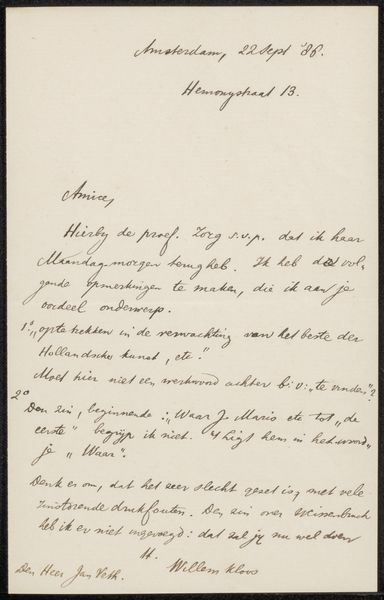 Amsterdam, 22 Sept '86.
Hemonystraat 13.
Amice,
Hierbij de proef. Zorg s.v.p. dat ik haar
Maandagmorgen terugheb. Ik heb de vol-
gende opmerkingen te maken, die ik aan je
oordeel onderwerp.
1o: „op te trekken in de verwachting van het beste der
Hollandsche kunst, etc."
Moet hier niet een werkwoord achter b.v: „te vinden"?
2o
Den zin, beginnende: „Waar J. Maris etc tot „de
eerste" begrijp ik niet. 't ligt hem in het woord-
je „Waar".
Denk er om, dat het zeer slecht gezet is, met vele
zinstorende drukfouten. Den zin over Weissenbruch
heb ik er niet ingevoegd: dat zal jij nu wel doen
t.t.
Willem Kloos
Den Heer Jan Veth.